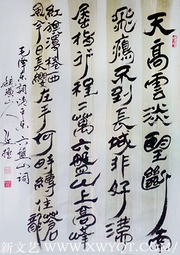 天高雲淡望斷南
飛鴈不到長城非好漢
屈指行程二萬六盤山上高峰
紅旗漫捲西
風今日長纓在手何時縛住蒼龍
毛澤東詞清平樂六盤山詞
山人
新文艺